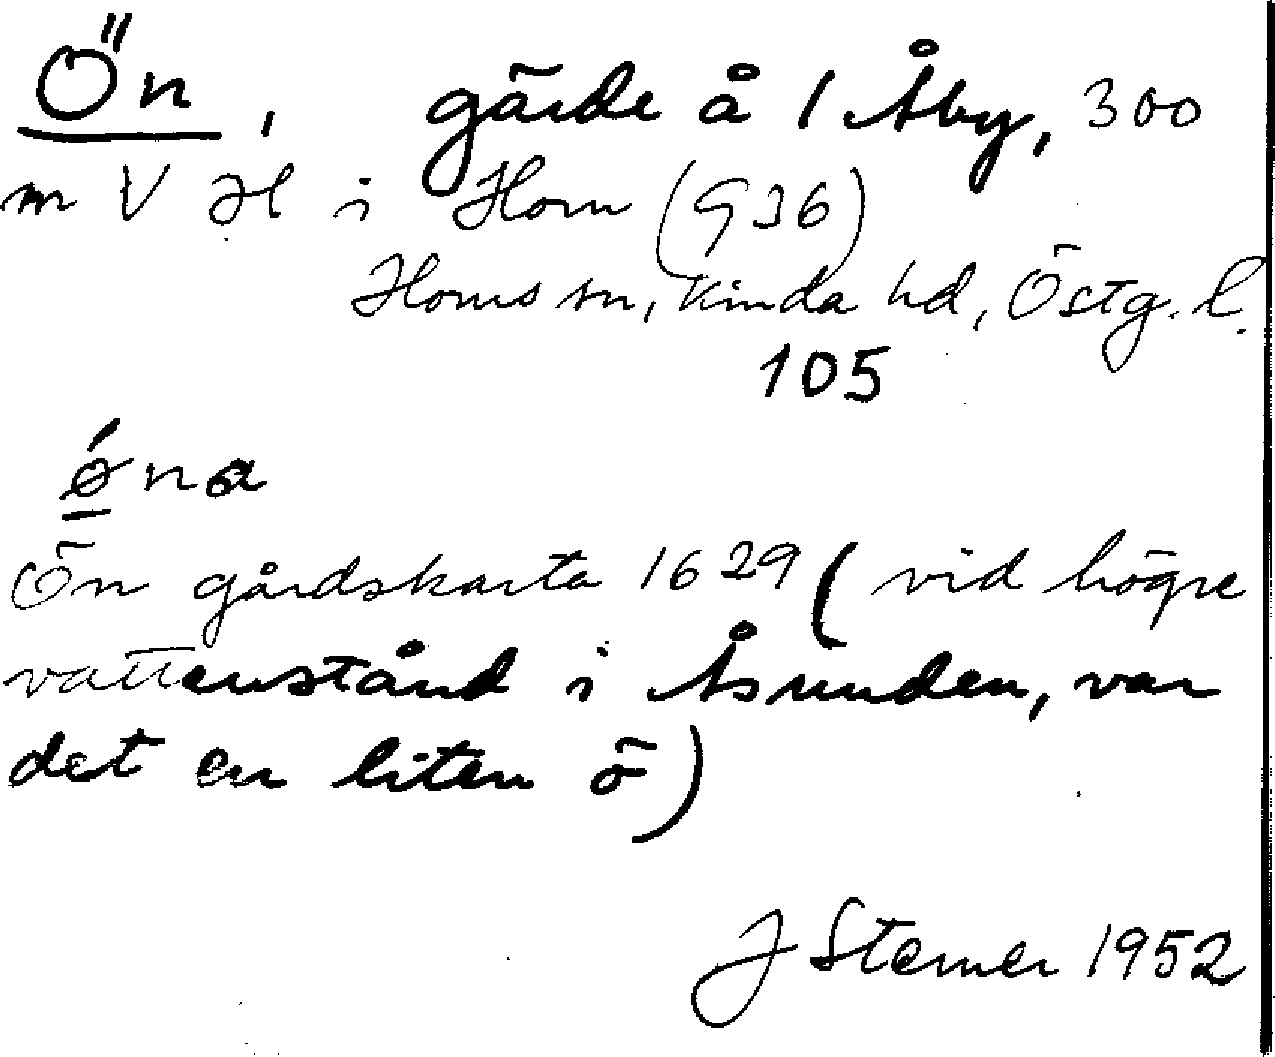 Ön, gärde å 1 Åby, 300
m V H i Horn (G36)
Horns sn, Kinda hd, Östg. l.
105
ǿna
Ön gårdskarta 1629 (vid högre
vattenstånd i Åsunden, var
det en liten ö)
J Sterner 1952